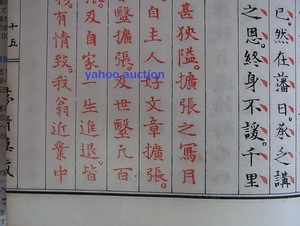 已。然在藩日。承之講
之恩。終身不諼。千里
甚狹隘。擴張之寫月
自主人好文章。擴張。
醫擴張。及世醫凡百
及自家一生進退。皆
有情致。我翁近業中
十五
yahoo auction